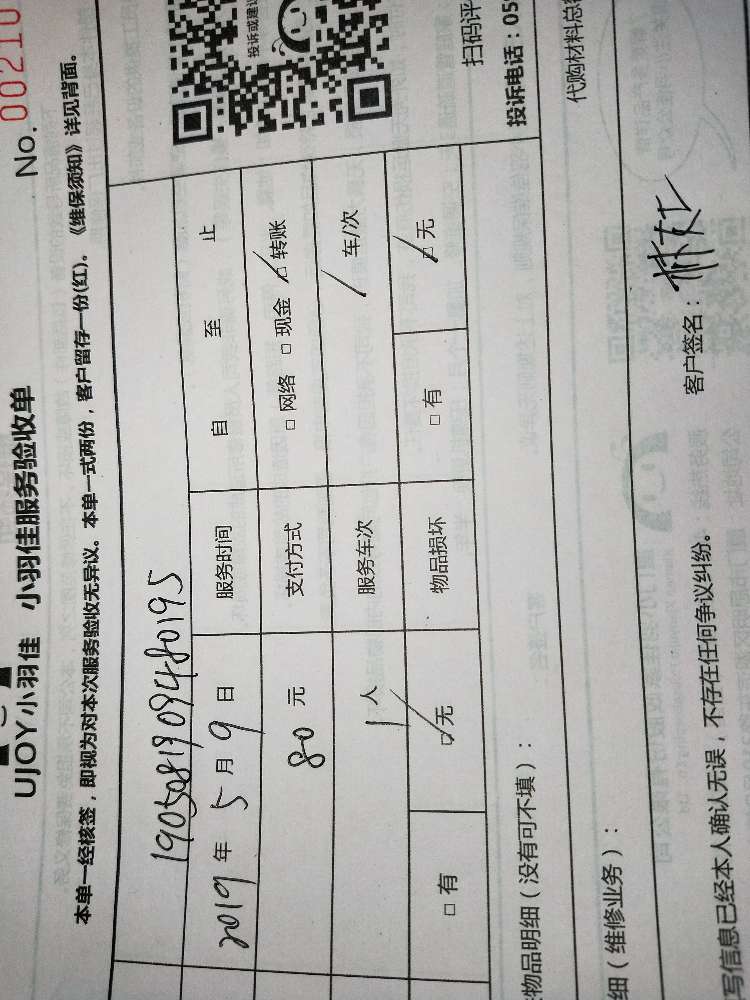 No.00210
UJOY小羽佳 小羽佳服务验收单
本单一经核签，即视为对本次服务验收无异议。本单一式两份，客户留存一份(红)。《维保须知》详见背面。
投诉或建议
19050819094480195
2019 年 5 月 9 日 服务时间 自 至 止
80 元 支付方式 □ 网络 □ 现金 □ 转账
1 人 服务车次 / 车/次
□ 有 □ 无 物品损坏 □ 有 □ 无
扫码评
投诉电话：059
物品明细（没有可不填）：
代购材料总
细（维修业务）：
客户签名：
写信息已经本人确认无误，不存在任何争议纠纷。